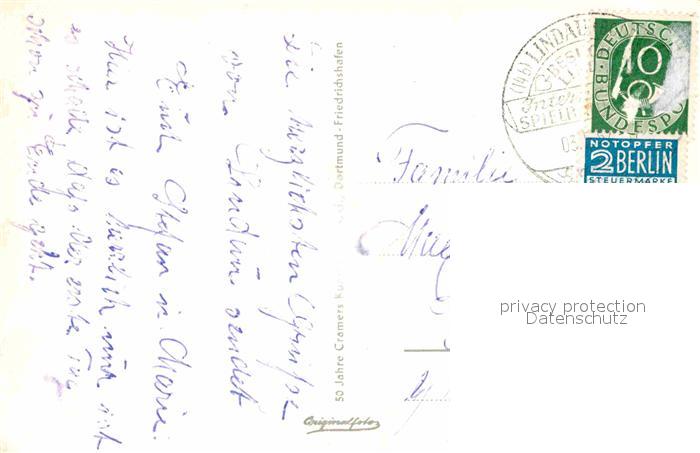 Die herzlichsten Grüsse
von Lindau sendet
Euch Stefan u. Marie.
Hier ist es herrlich nur ist
es schade dass der erste Tag
schon zu Ende geht.
50 Jahre Cramers Ku
Dortmund - Friedrichshafen
Originalfoto
Familie
(14b) LINDAU
SPIEL
DEUTSCHE
BUNDESPO
10
NOTOPFER
2 BERLIN
STEUERMARKE
privacy protection
Datenschutz